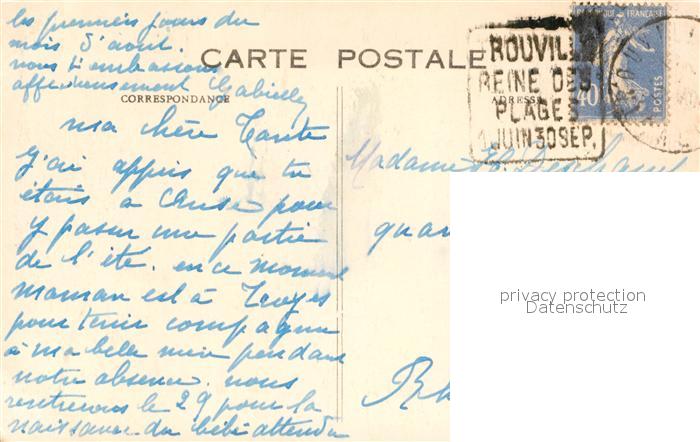 CARTE POSTALE
CORRESPONDANCE
ADRESSE
ROUVILL
REINE DES
PLAGES
1 JUIN 30 SEP.
FRANÇAISE
40
POSTES
ma chère Tante
J'ai appris que tu
étais à Anse pour
y passer une partie
de l'été. en ce moment
maman est à Troyes
pour tenir compagnie
à ma belle mère pendant
notre absence. nous
rentrerons le 29 pour la
naissance du bébé attendu
les premiers jours du
mois d'août.
nous t'embrassons
affectueusement
Madame
quai
privacy protection
Datenschutz